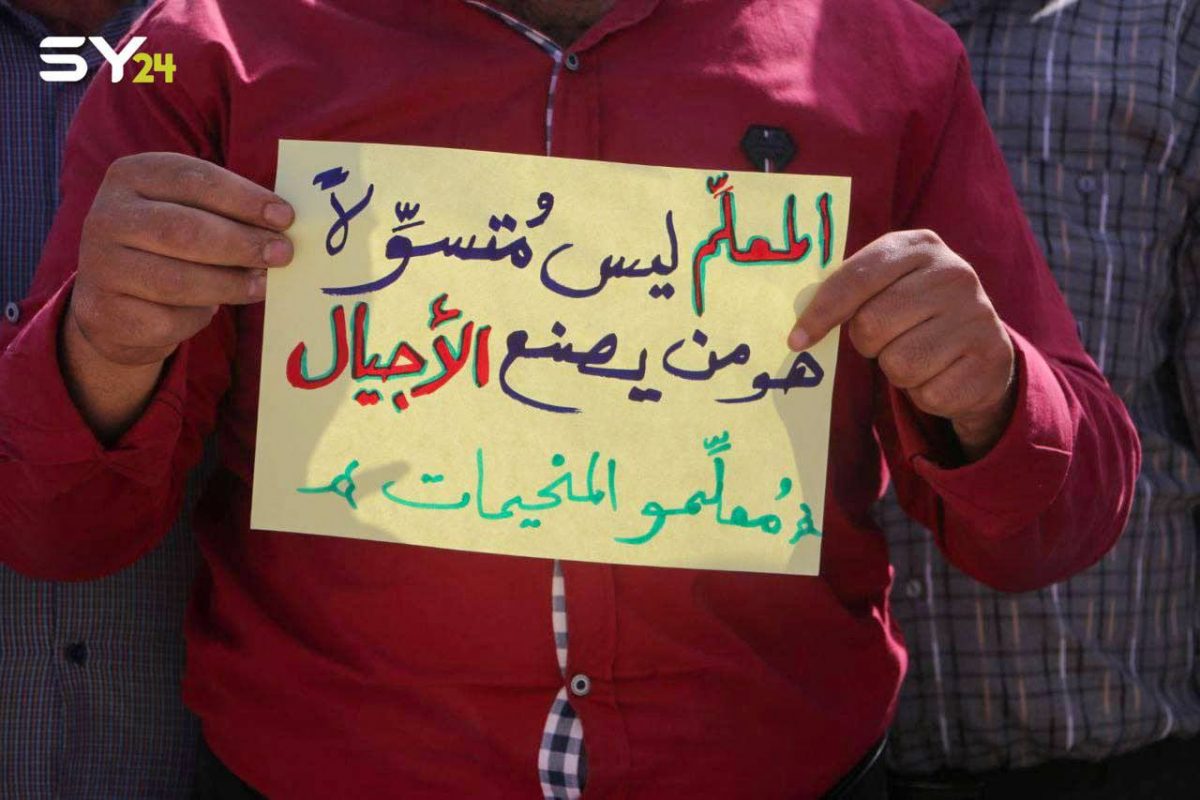 SY24
المعلّم ليس مُتسوّلاً
هو من يصنع الأجيال
مُعلّمو المخيمات